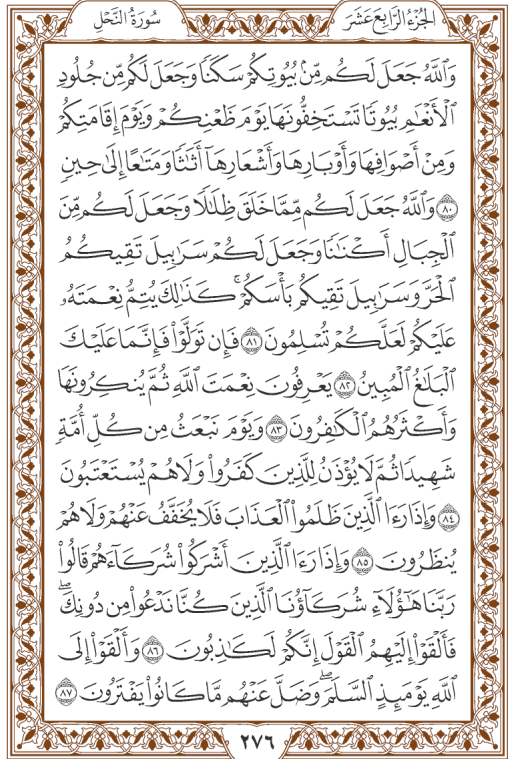 الجُزْءُ الرَّابِعَ عَشَرَ
سُورَةُ النَّحْلِ
وَٱللَّهُ جَعَلَ لَكُم مِّنۢ بُيُوتِكُمْ سَكَنًا وَجَعَلَ لَكُم مِّن جُلُودِ
ٱلْأَنْعَٰمِ بُيُوتًا تَسْتَخِفُّونَهَا يَوْمَ ظَعْنِكُمْ وَيَوْمَ إِقَامَتِكُمْ
وَمِنْ أَصْوَافِهَا وَأَوْبَارِهَا وَأَشْعَارِهَآ أَثَٰثًا وَمَتَٰعًا إِلَىٰ حِينٍ
٨٠ وَٱللَّهُ جَعَلَ لَكُم مِّمَّا خَلَقَ ظِلَٰلًا وَجَعَلَ لَكُم مِّنَ
ٱلْجِبَالِ أَكْنَٰنًا وَجَعَلَ لَكُمْ سَرَٰبِيلَ تَقِيكُمُ
ٱلْحَرَّ وَسَرَٰبِيلَ تَقِيكُم بَأْسَكُمْۚ كَذَٰلِكَ يُتِمُّ نِعْمَتَهُۥ
عَلَيْكُمْ لَعَلَّكُمْ تُسْلِمُونَ ٨١ فَإِن تَوَلَّوْا۟ فَإِنَّمَا عَلَيْكَ
ٱلْبَلَٰغُ ٱلْمُبِينُ ٨٢ يَعْرِفُونَ نِعْمَتَ ٱللَّهِ ثُمَّ يُنكِرُونَهَا
وَأَكْثَرُهُمُ ٱلْكَٰفِرُونَ ٨٣ وَيَوْمَ نَبْعَثُ مِن كُلِّ أُمَّةٍ
شَهِيدًا ثُمَّ لَا يُؤْذَنُ لِلَّذِينَ كَفَرُوا۟ وَلَا هُمْ يُسْتَعْتَبُونَ
٨٤ وَإِذَا رَءَا ٱلَّذِينَ ظَلَمُوا۟ ٱلْعَذَابَ فَلَا يُخَفَّفُ عَنْهُمْ وَلَا هُمْ
يُنظَرُونَ ٨٥ وَإِذَا رَءَا ٱلَّذِينَ أَشْرَكُوا۟ شُرَكَآءَهُمْ قَالُوا۟
رَبَّنَا هَٰٓؤُلَآءِ شُرَكَآؤُنَا ٱلَّذِينَ كُنَّا نَدْعُوا۟ مِن دُونِكَۖ
فَأَلْقَوْا۟ إِلَيْهِمُ ٱلْقَوْلَ إِنَّكُمْ لَكَٰذِبُونَ ٨٦ وَأَلْقَوْا۟ إِلَى
ٱللَّهِ يَوْمَئِذٍ ٱلسَّلَمَۖ وَضَلَّ عَنْهُم مَّا كَانُوا۟ يَفْتَرُونَ ٨٧
٢٧٦